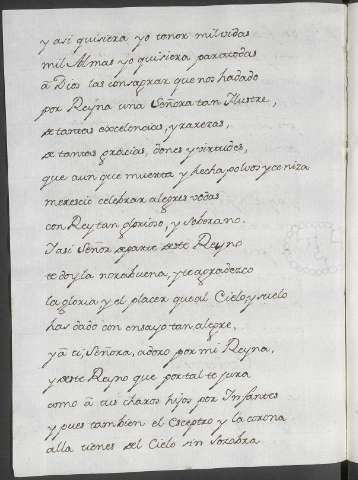 y asi quisiera yo tener mil vidas
mil Almas yo quisiera para todas
â Dios las consagrar que nos hâ dado
por Reyna una Señora tan Ilustre,
de tantas excelencias, y raxeras,
de tantas grâcias, dones y virtudes,
que aun que muerta y hecha polvos y ceniza
merescio celebrar alegres vodas
con Rey tan glorioso, y soberano.
Y asi Señor de parte deste Reyno
te doy la norabuena, y te agradezco
la gloria y el placer que al Cielo y suelo
has dado con ensayo tan alegre,
y â ti, Señora, adoro por mi Reyna,
y deste Reyno que por tal te jura
como â tus charos hijos por Infantes
y pues tambien el Esceptro y la corona
alla tienes del Cielo sin sozobra